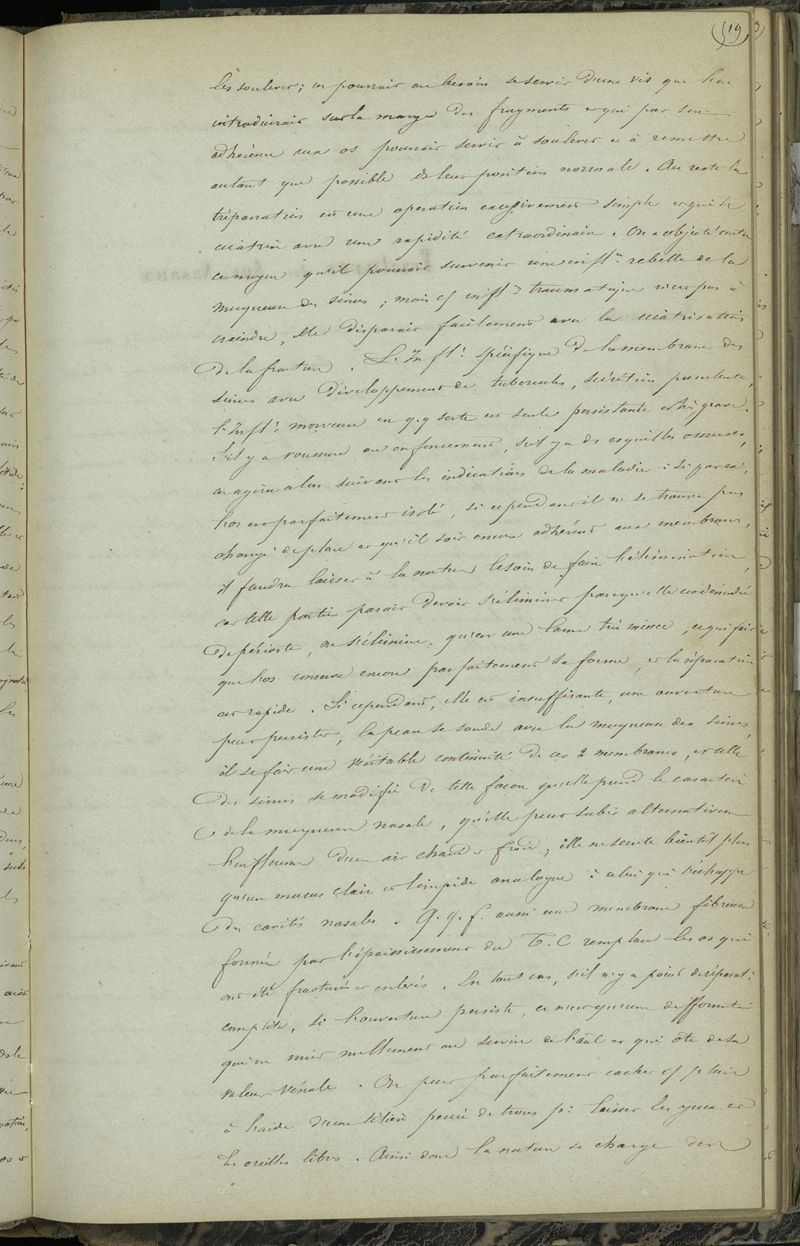 519
les soulever ; on pourrait au besoin se servir d'une vis que l'on
introduirait sur la marge des fragments et qui par son
adhérence aux os pourrait servir à soulever et à remettre
autant que possible de leur position normale . Au reste la
trépanation est une operation excessivement simple et qui se
cicatrise avec une rapidité extraordinaire . On a objecté contre
ce moyen qu'il pourrait survenir une inflon rebelle de la
muqueuse des sinus ; mais cf inflon traumatique n'est pas à
craindre, elle disparait facilement avec la cicatrisation
de la fracture . L'inflon spécifique de la membrane des
sinus avec développement de tubercules, secrétion purulente,
l'inflon morveuse en q.q sorte est seule persistante et très grave.
S'il y a voussure ou enfoncement, s'il y a des esquilles osseuses,
on agira alors suivant les indications de la maladie : si par ex,
l'os est parfaitement isolé, si cependant il ne se trouve pas
changé de place et qu'il soit encore adhérent aux membranes,
il faudra laisser à la nature le soin de faire l'élimination,
car telle partie parait devoir s'éliminer parcequ'elle est dénudée
de périoste, ne s'élimine qu'en une lame très mince, ce qui fait
que l'os conserve encore parfaitement sa forme, et la réparation
est rapide . Si cependant, elle est insuffisante, une ouverture
peut persister, la peau se soude avec la muqueuse des sinus,
il se fait une véritable continuité de ces 2 membranes, et celle
des sinus se modifie de telle façon qu'elle prend le caractère
de la muqueuse nasale, qu'elle peut subir alternativement
l'influence d'un air chaud et froid, elle ne secrète bientôt plus
qu'un mucus clair et limpide analogue à celui qui s'échappe
des cavités nasales . Q.q.f. aussi une membrane fibreuse
formée par l'épaississement du T.C remplace les os qui
ont été fracturés et enlevés . En tout cas, s'il n'y a point de réparation
complète, si l'ouverture persiste, ce n'est qu'une difformité
qui ne nuit nullement au service de l'anl et qui ôte de sa
valeur vénale . On peut parfaitement cacher cf plaie
à l'aide d'une têtière percée de trous pr laisser les yeux et
les oreilles libres . Ainsi donc la nature se charge dans